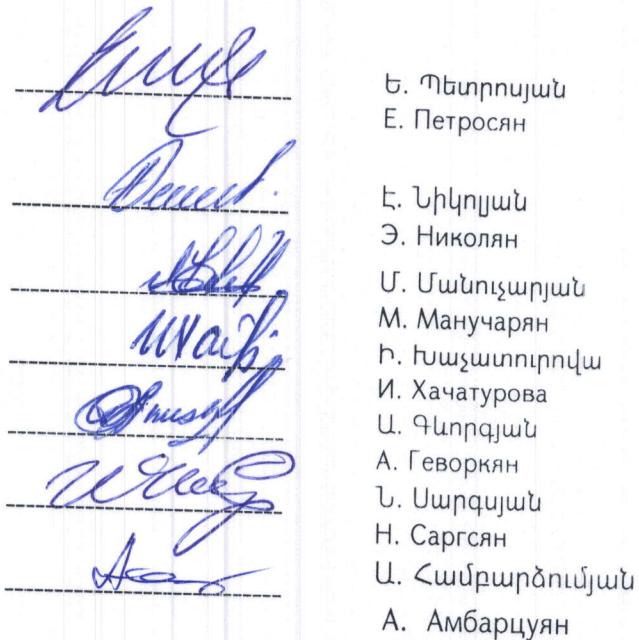 Ե. Պետրոսյան
Е. Петросян
Է. Նիկոլյան
Э. Николян
Մ. Մանուչարյան
М. Манучарян
Ի. Խաչատուրովա
И. Хачатурова
Ա. Գևորգյան
А. Геворкян
Ն. Սարգսյան
Н. Саргсян
Ա. Համբարձումյան
А. Амбарцуян